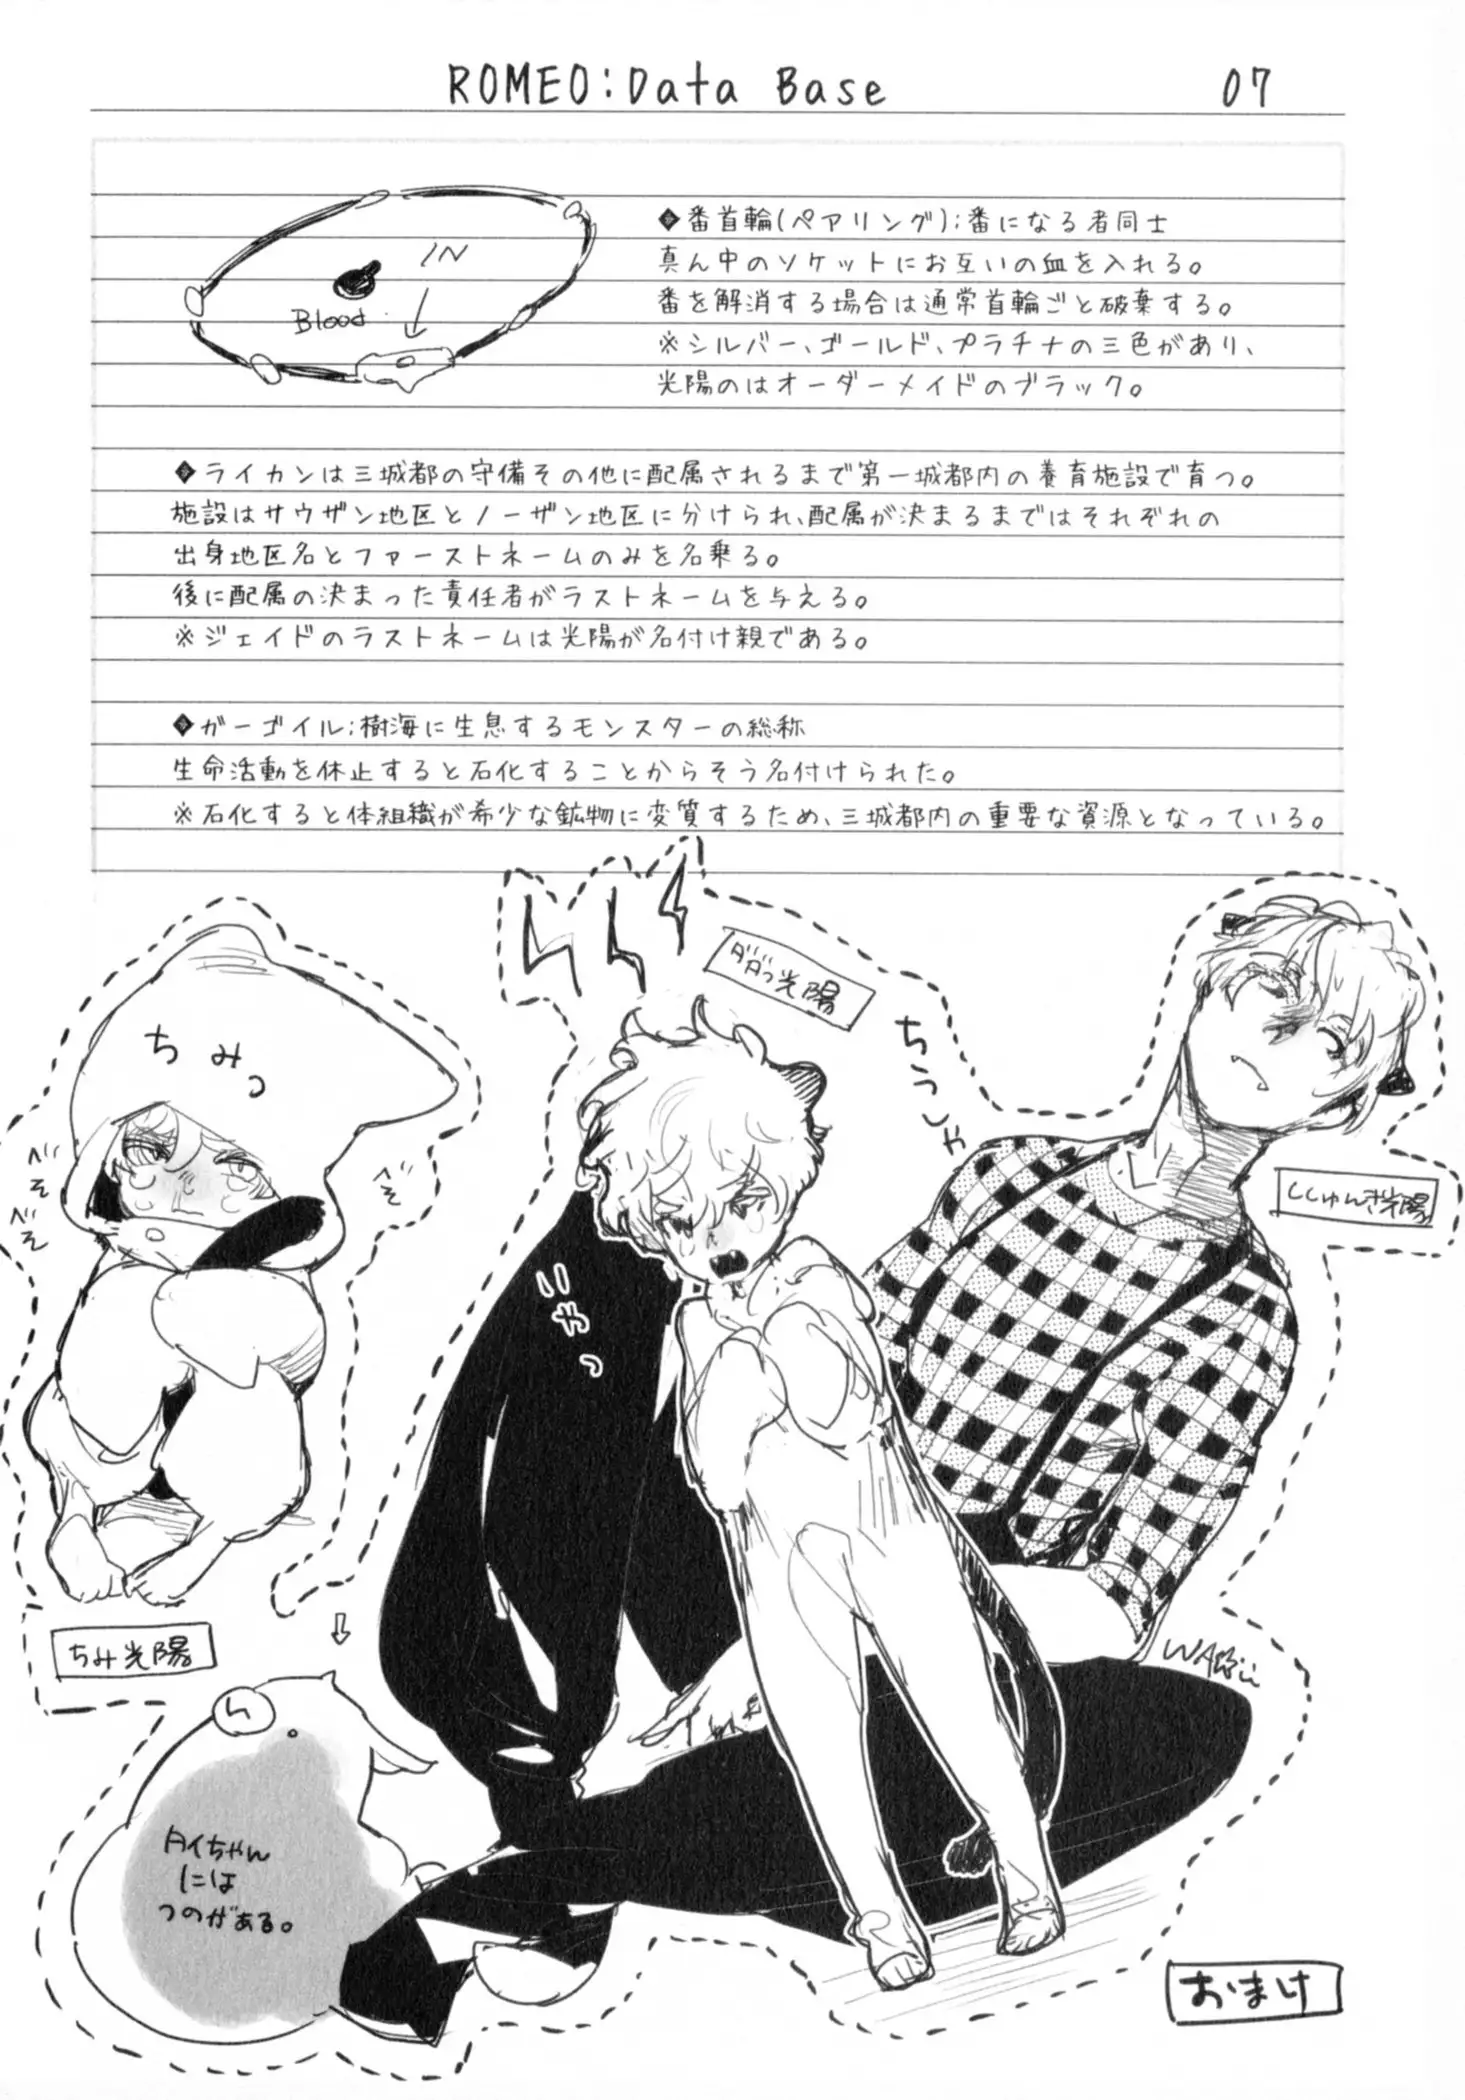 ROMEO:Data Base
07
IN
Blood
◆番首輪(ペアリング);番になる者同士
真ん中のソケットにお互いの血を入れる。
番を解消する場合は通常首輪ごと破棄する。
※シルバー、ゴールド、プラチナの三色があり、
光陽のはオーダーメイドのブラック。
◆ライカンは三城都の守備その他に配属されるまで第一城都内の養育施設で育つ。
施設はサウザン地区とノーザン地区に分けられ、配属が決まるまではそれぞれの
出身地区名とファーストネームのみを名乗る。
後に配属の決まった責任者がラストネームを与える。
※ジェイドのラストネームは光陽が名付け親である。
◆ガーゴイル;樹海に生息するモンスターの総称
生命活動を休止すると石化することからそう名付けられた。
※石化すると体組織が希少な鉱物に変質するため、三城都内の重要な資源となっている。
ダダっ光陽
ちうしゃ
ししゅんき光陽
ちみっ
べそ
べそ
べそ
にゃっ
ちみ光陽
タイちゃん
には
つのがある。
おまけ